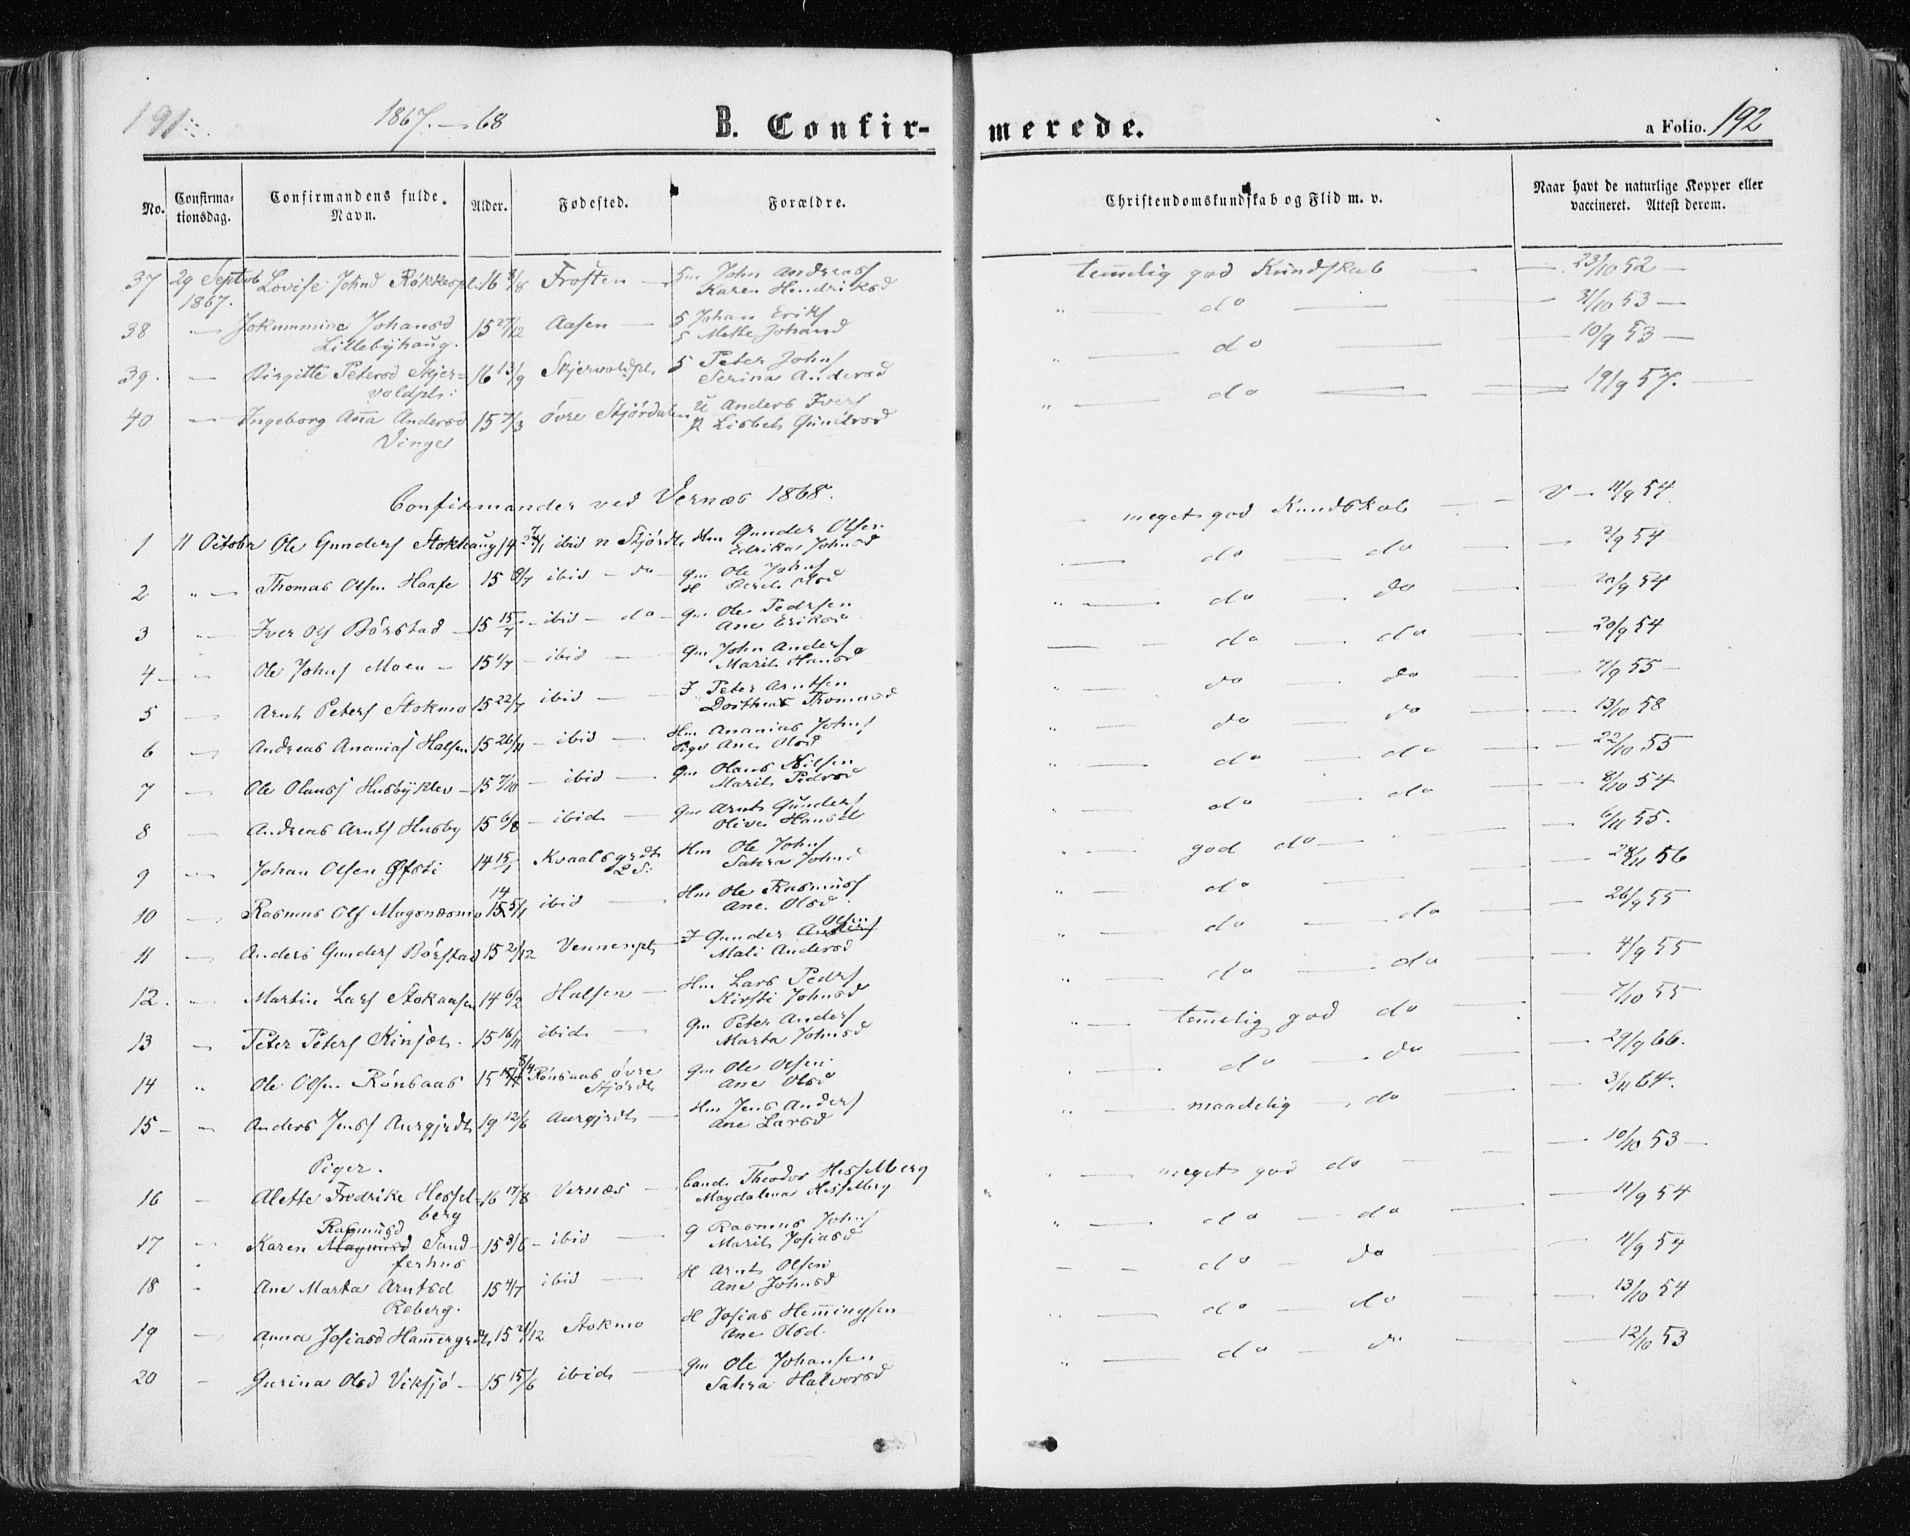 191
1867.–68
B. Confir-
merede.
a Folio. 192
No.
Confirma-
tionsdag.
Confirmandens fulde
Navn.
Alder.
Fødested.
Forældre.
Christendomskundskab og Flid m. v.
Naar havt de naturlige Kopper eller
vaccineret. Attest derom.
37 29 Septeb Lovise Johnd Røkkespl: 16 Frosten — John Andreass temelig god Kundskab — 23/10 52 —
1867. Karen Hendriksd
38 — Jokummine Johansd 15 27/12 Aasen — S Johan Eriks do — 31/10 53 —
Lillebyhaug. S Mette Johand
39. — Birgitte Petersd Skjer= 16 13/9 Skjervoldspl. S Peter Johns do — 10/9 53 —
voldpls: Serina Andersd
40 — Ingeborg Ana Andersd 15 7/3 øvre Stjørdalen U Anders Ivers do — 19/9 57. —
Vinges P Lisbet Gundersd
Confirmander ved Vernæs 1868.
1 11 October Ole Gunders Stokhaug 14 ibid n Stjørdl Hm Gunder Olsen meget god Kundskab — V — 11/9 54
Edrika Johnsd
2 " — Thomas Olsen Haase 15 8/7 ibid — do — Gm Ole Johns do — do — 2/9 54
Olsd
3 " — Iver Ols Børstad — 15 15/7 — ibid — do — Gm Ole Pedersen do — do — 20/9 54
Ane Eriksd
4 — " Ole Johns Moen — 15 1/7 — ibid — Gm John Anders do — do — 20/9 54
Marit Hansd
5 — Arnt Peters Stokmo 15 22/7 — ibid — I Peter Arntsen do — do — 7/9 55 —
Dorthea Thomasd
6 — Andreas Ananias Halsen 15 26/11 — ibid — Hm Ananias Johns do — do — 13/10 58
Pige Ane Olsd
7 — Ole Olauss Husbyklev — 15 7/10 — ibid — Gm Olaus Nilsen do — do — 22/10 55
Marit Pedersd
8 — Andreas Arnts Husby 15 6/8 — ibid — Gm Arnt Gunders do — do — 8/10 54
Olive Hansd
9 — Johan Olsen Øfsti 14 15/1 Kvaalsgrdt Hm Ole Johns god do — 6/11 55.
L S: Sahra Johnd
10 — Rasmus Ols Mogsnæsmo 14 15 5/1 ibid — Hm Ole Rasmuss do — 28/11 56
Ane Olsd
11 — Anders Gunders Børstad 15 21/12 Vennespl — I Gunder Anders Olsen do — do — 26/9 55
Mali Andersd
12. " Martin Lars Stokaasen 14 6/2 Halsen — Hm Lars Peders do — do — 4/9 55
Kirsti Johnsd
13 — Peter Peters Kinsæt. 15 16/11 ibid — Gm Peter Anders temelig god do — 7/10 55
Marta Johnsd
14 " Ole Olsen Rønsaas 15 Rønsaas øvre Gm Ole Olsen do — do — 29/9 66.
Stjørdl Ane Olsd
15 — " Anders Jens Aurgjrdt 19 12/6 Aurgjrdt — Hm Jens Anders maadelig — do — 3/11 64.
Ane Larsd
Piger.
16 — Alette Fredrike Hessel= 16 17/8 Vernæs — Cand: Theodor Hesselberg meget god do — 10/10 53 —
berg Magdalena Hesselberg
Rasmusd
17 " Karen Magnusd Sand= 15 3/6 — ibid — G Rasmus Johns do — do — 11/9 54
ferhus Marit Josiasd
18 " Ane Marta Arntsd 15 4/7 ibid — H Arnt Olsen do — do — 11/9 54
Reberg. Ane Johnsd
19 — Anna Josiasd Hamergrdt 15 21/12 Stokmo H Josias Hemingsen do — do — 13/10 54
Ane Olsd.
20 — Gurina Olsd Viksjø — 15 15/6 ibid — Gm Ole Johansen do — do — 12/10 53
Sahra Halvorsd